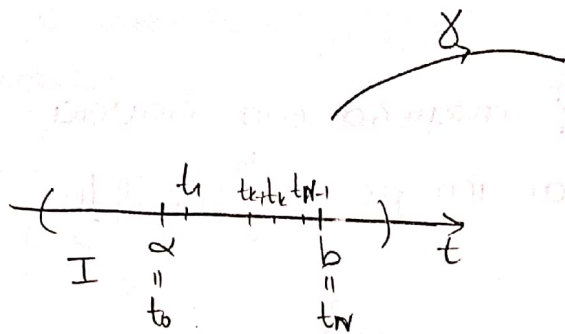 γ
t₁ tₖ₋₁ tₖ t_N-1
( )
I a b t
= =
t₀ t_N